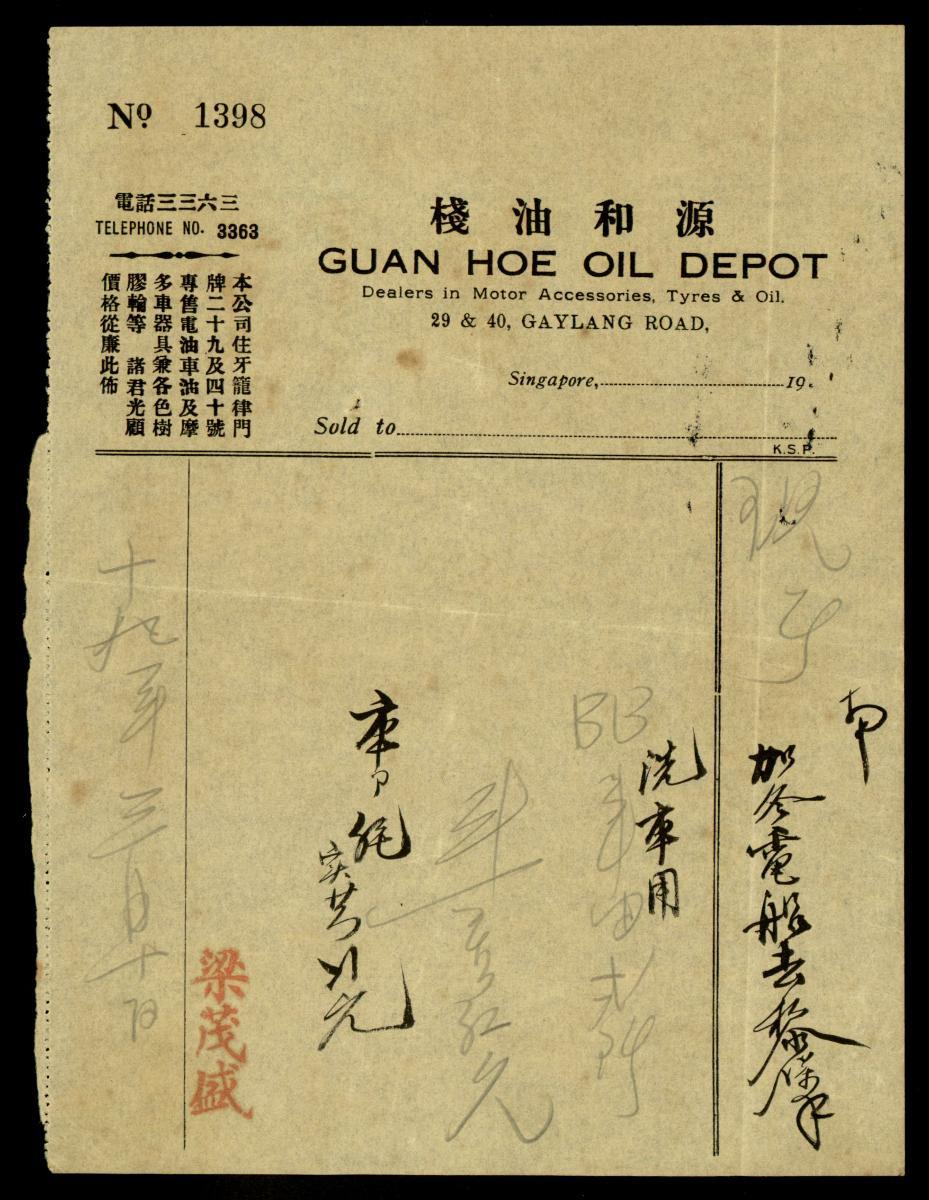 Nº 1398
電話三三六三
TELEPHONE NO. 3363
本公司住牙籠律門
牌二十九及四十號
專售電油車油及摩
多車器具兼各色樹
膠輪等 諸君光顧
價格從廉此佈
棧油和源
GUAN HOE OIL DEPOT
Dealers in Motor Accessories, Tyres & Oil.
29 & 40, GAYLANG ROAD,
Singapore, 19
Sold to
K.S.P.
電船去
BB
洗車用
十九年三月十日
梁茂盛